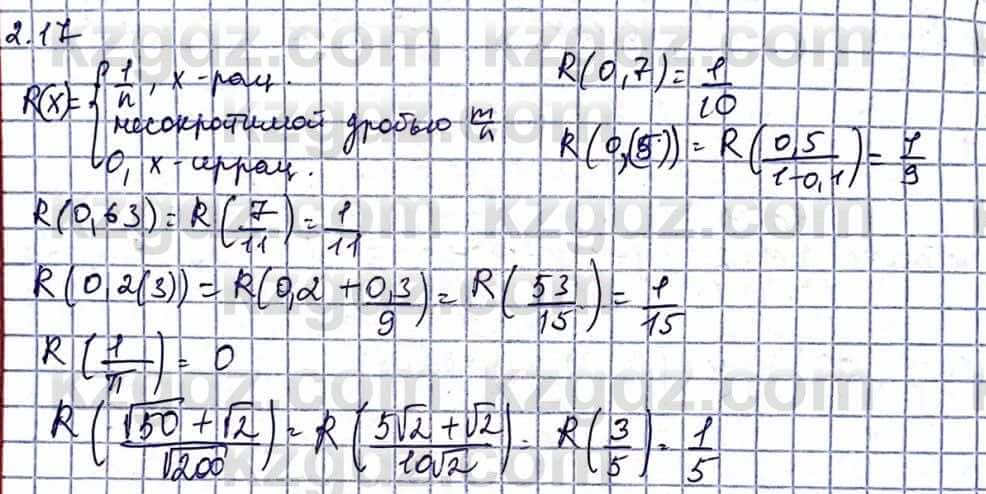 2.17
R(x)= { 1/n, x - рац.
несократимой дробью m/n
0, x - иррац.
R(0,7) = 1/10
R(0,(5)) = R(0,5/(1-0,1)) = 1/9
R(0,63) = R(7/11) = 1/11
R(0,2(3)) = R(0,2 + 0,3/9) = R(53/15) = 1/15
R(1/π) = 0
R((√50 + √2)/√200) = R((5√2 + √2)/10√2) = R(3/5) = 1/5
kzgdz.com